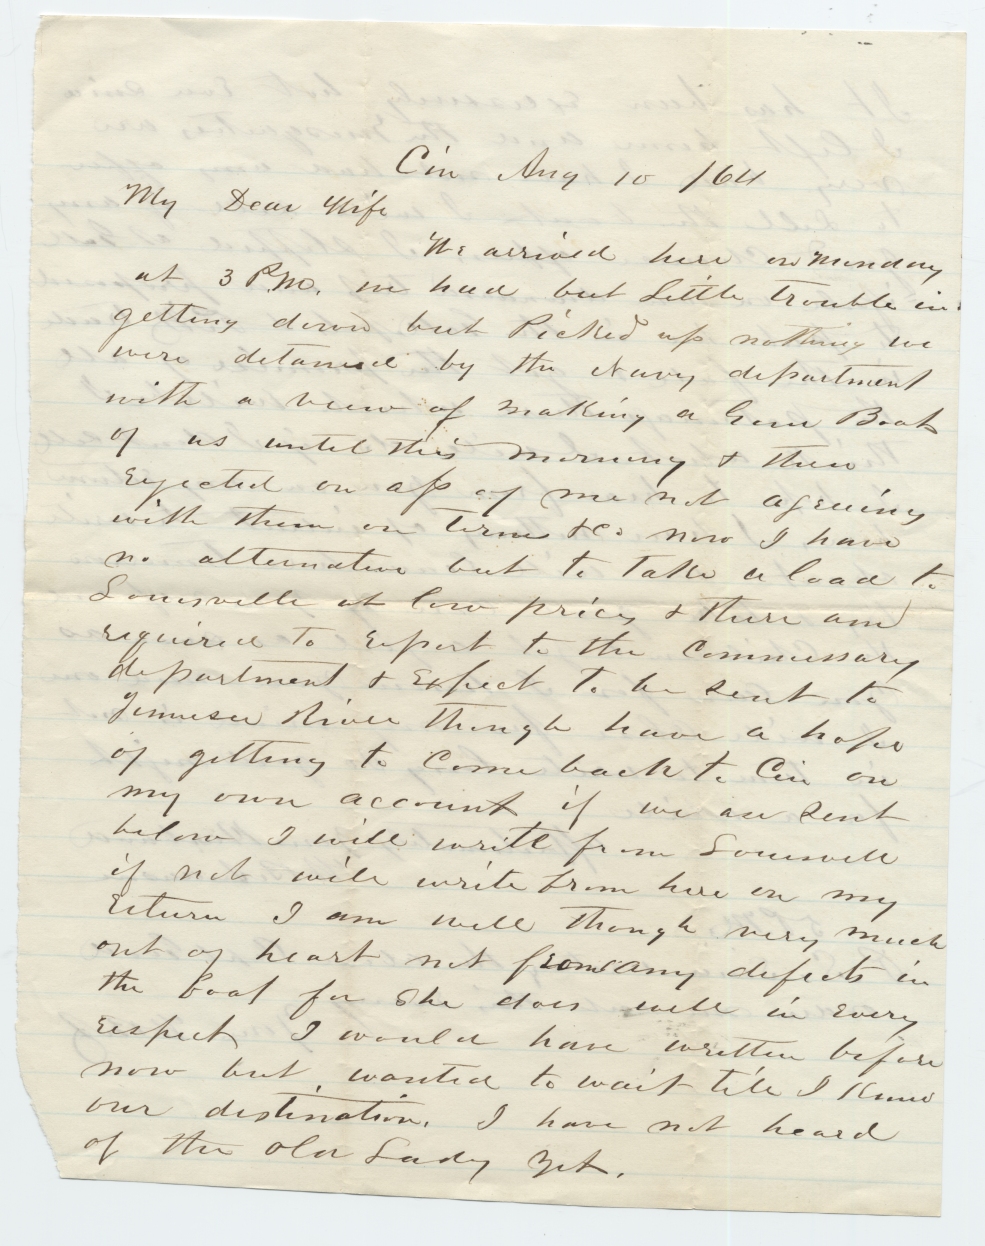 Cin Aug 10 /64
My Dear Wife
We arrived here on Monday
at 3 P.M. we had but Little trouble in
getting down but Picked up nothing we
were detained by the Navy department
with a view of making a Gun Boat
of us until this morning & then
rejected on a/c of me not agreeing
with them on terms &c. now I have
no alternative but to take a load to
Louisville at low prices & there am
required to report to the Commissary
department & Expect to be sent to
Tennessee River though have a hope
of getting to Come back to Cin on
my own account if we are sent
below I will write from Louisvell
if not will write from here on my
return I am well though very much
out of heart not from any defects in
the boat for She does well in Every
respect I would have written before
now but wanted to wait till I Knew
our destination. I have not heard
of the old Lady yet.